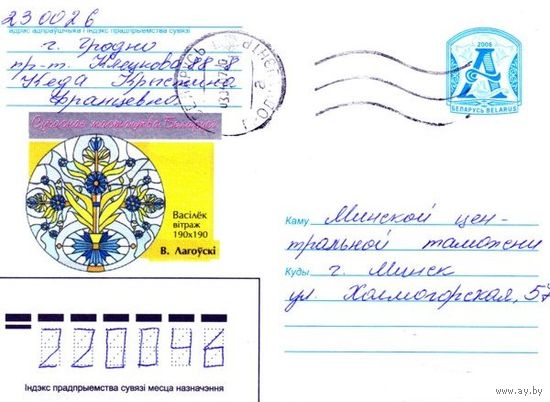 230026
адрас адпраўшчыка і індэкс прадпрыемства сувязі
г. Гродно
пр-т. Клецкова 88-8
Кеда Крыстина
Францевна
2006
А
БЕЛАРУСЬ BELARUS
Сучаснае мастацтва Беларусі
Васілёк
вітраж
190х190
В. Лагоўскі
Каму Минской цен-
тральной таможни
Куды г. Минск
ул. Холмогорская, 57
220046
Індэкс прадпрыемства сувязі месца назначэння
www.ay.by